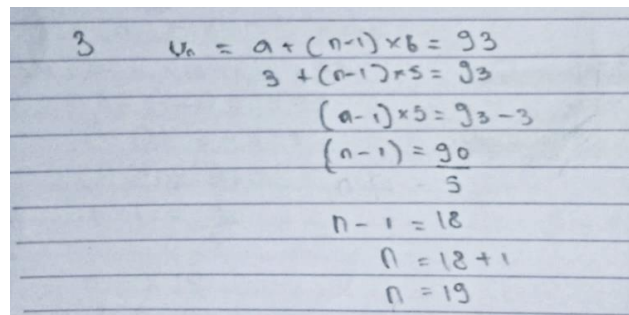 3 Uₙ = a + (n-1) × b = 93
3 + (n-1) × 5 = 93
(n-1) × 5 = 93 - 3
(n-1) = 90/5
n - 1 = 18
n = 18 + 1
n = 19